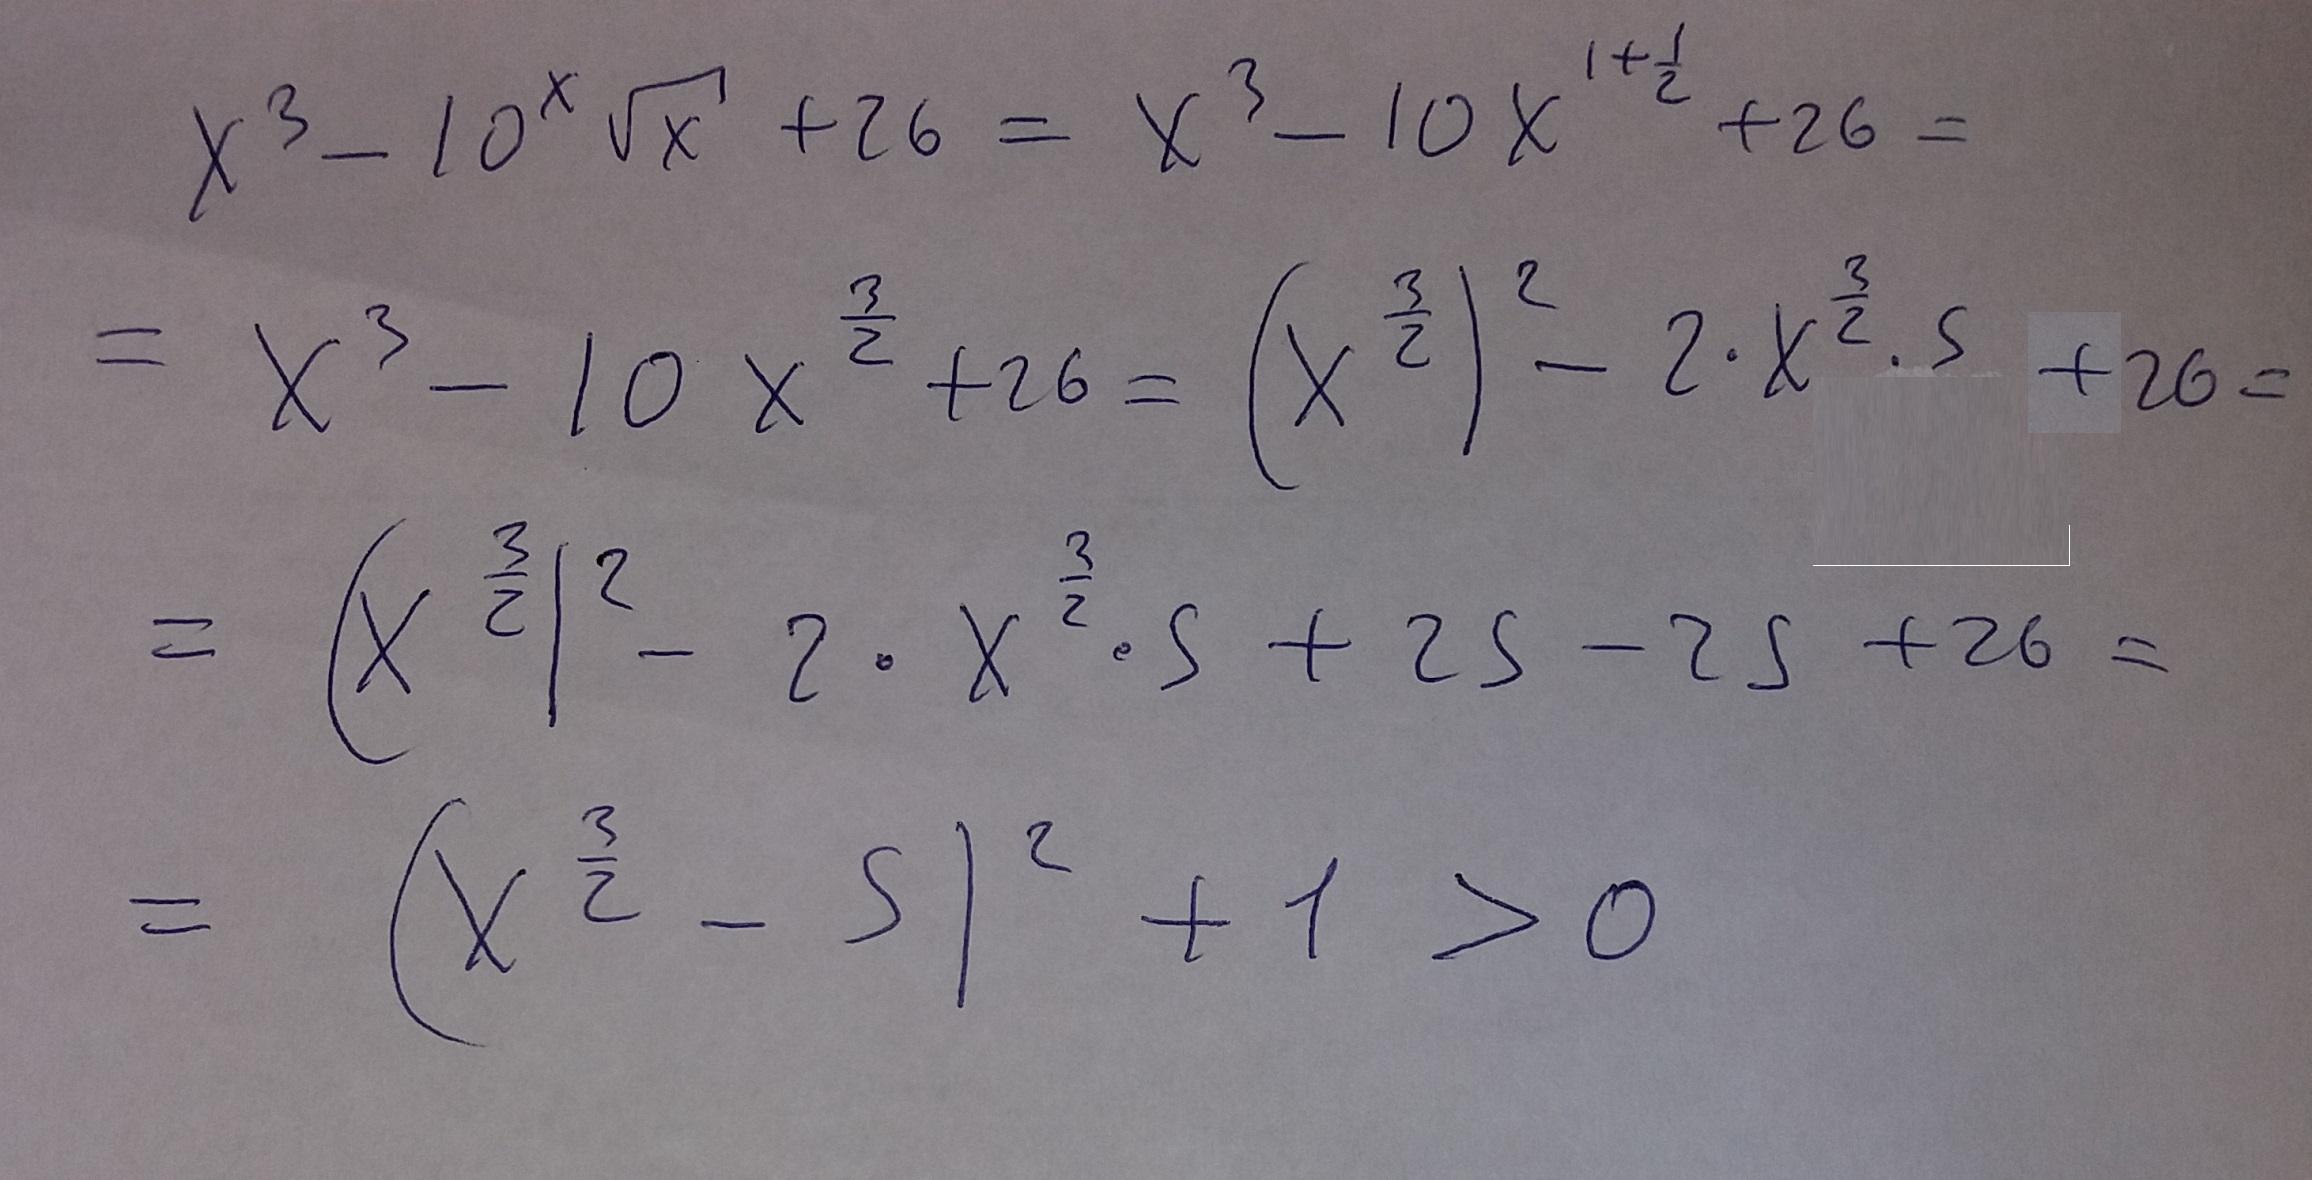 x³ − 10ˣ √x + 26 = x³ − 10 x^(1+1/2) + 26 =
= x³ − 10 x^(3/2) + 26 = (x^(3/2))² − 2 · x^(3/2) · 5 + 26 =
= (x^(3/2))² − 2 · x^(3/2) · 5 + 25 − 25 + 26 =
= (x^(3/2) − 5)² + 1 > 0